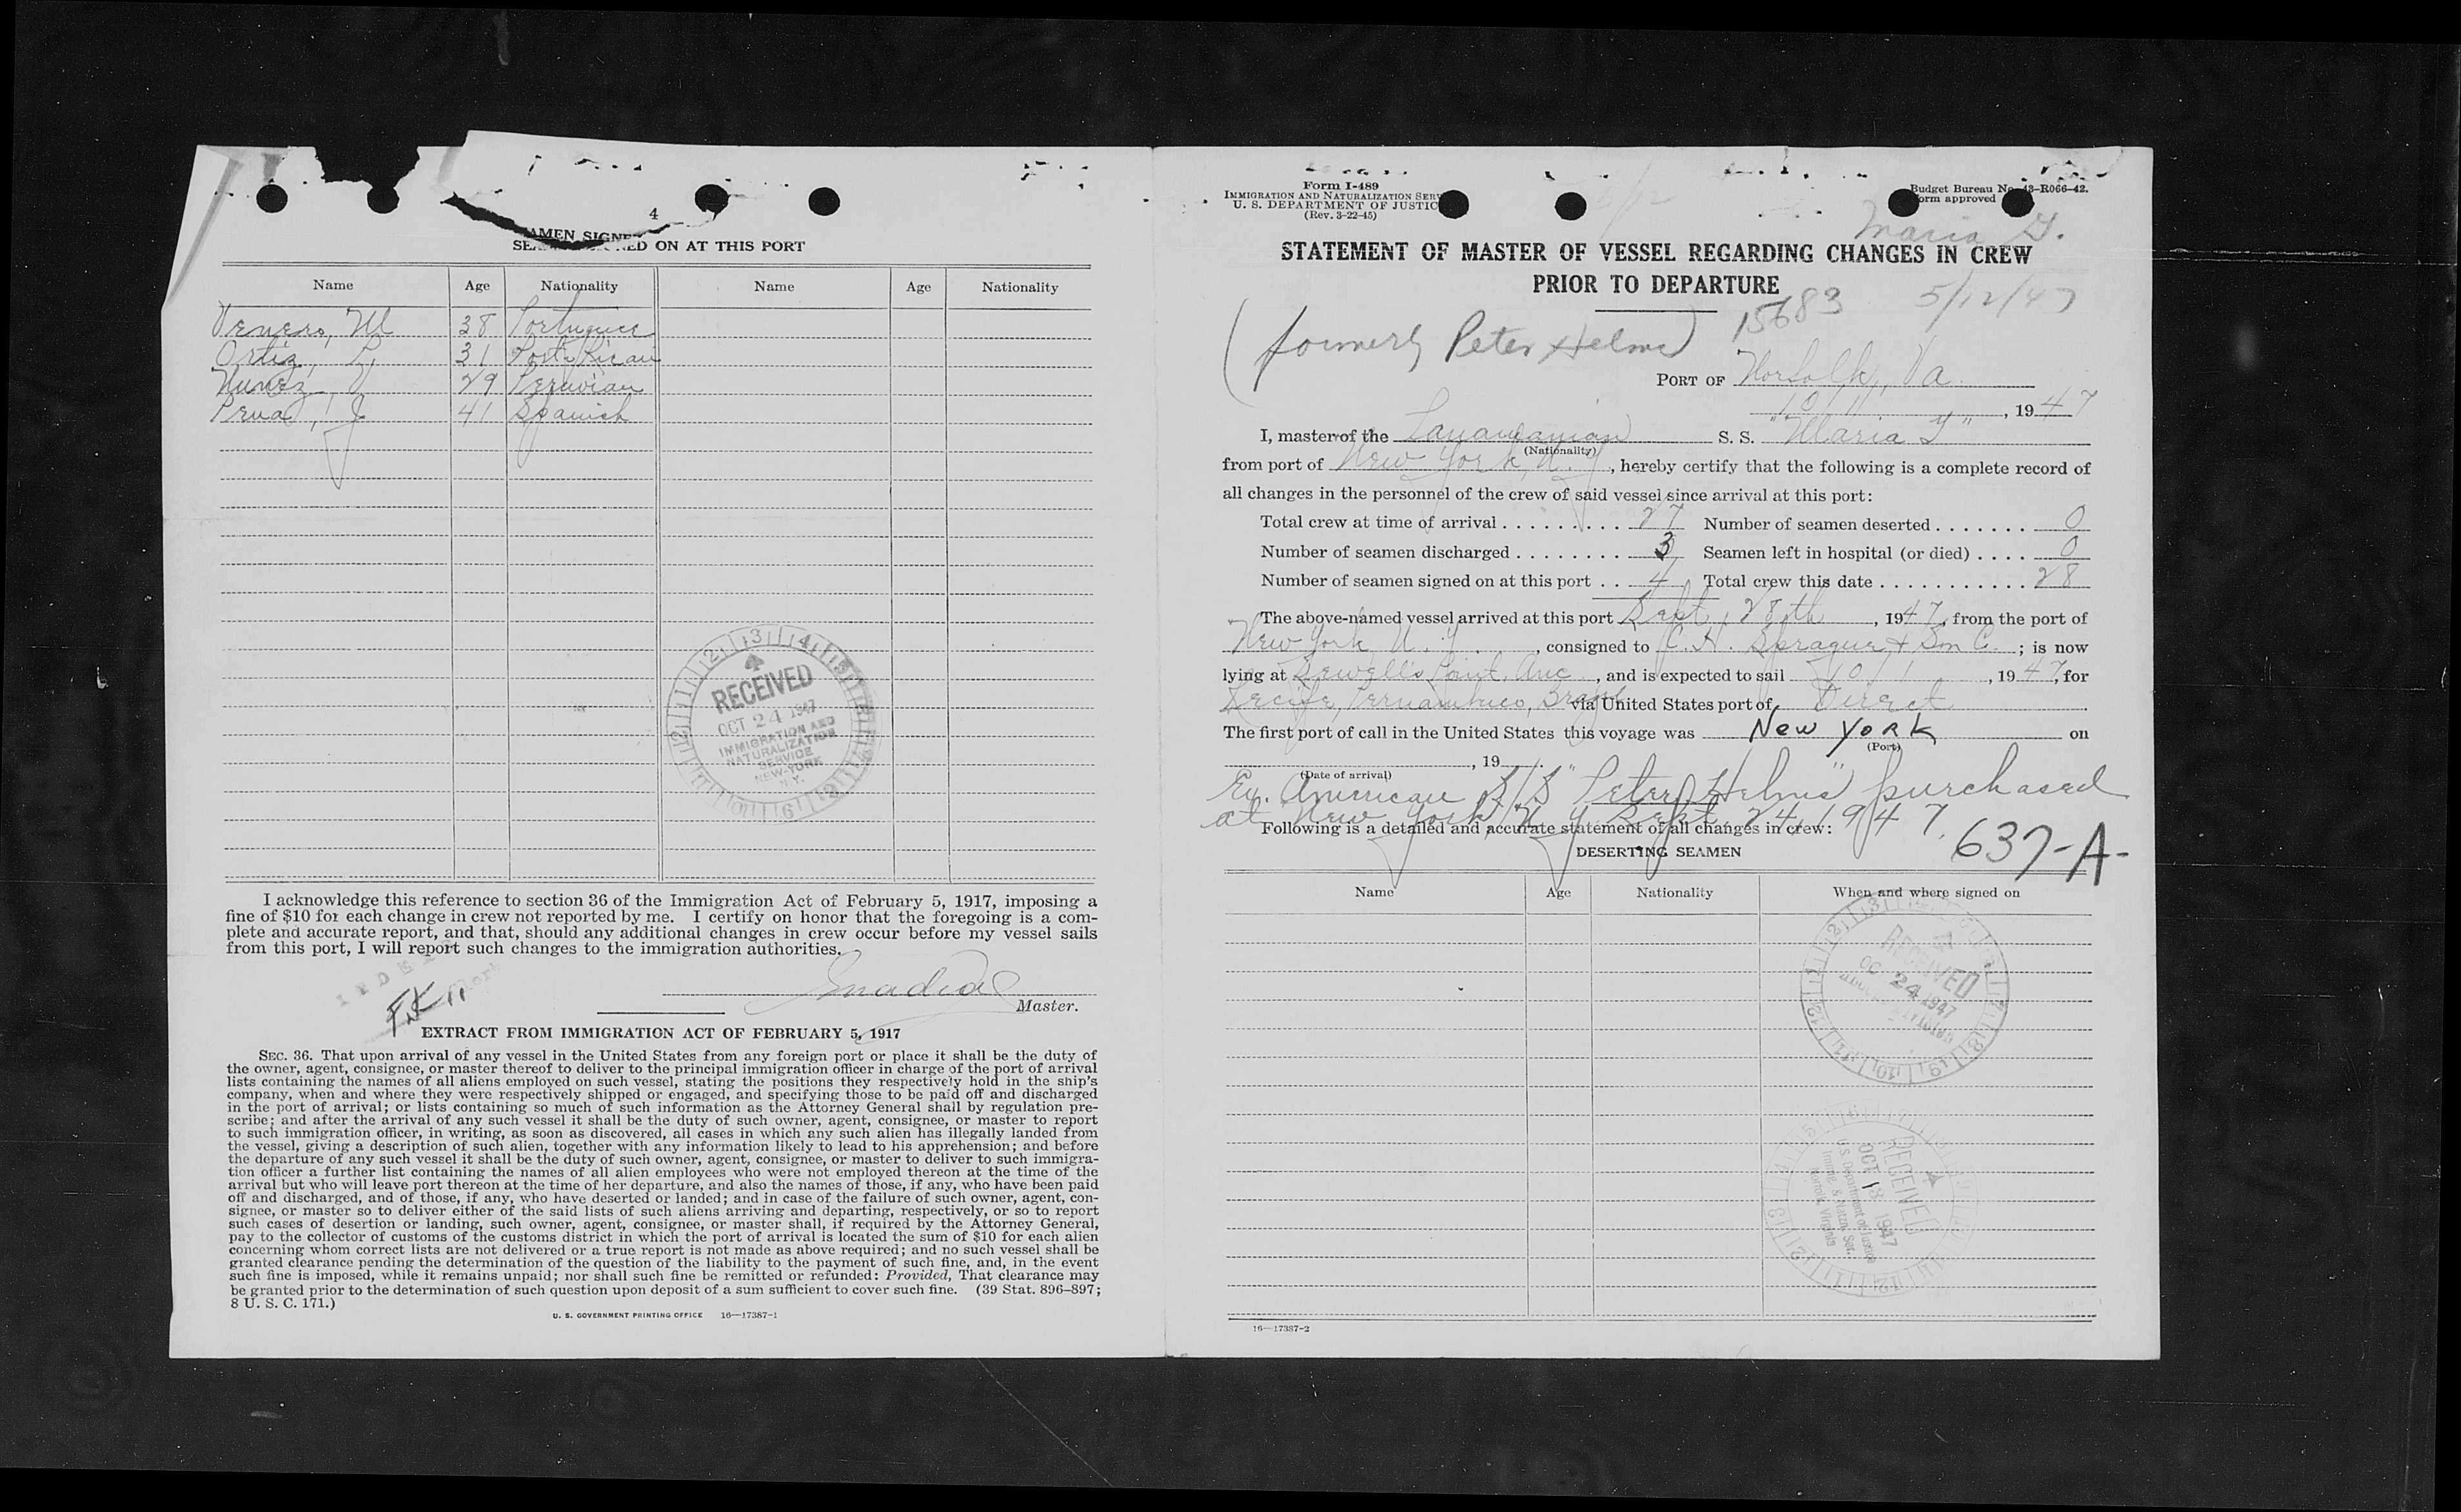 4
SEAMEN SIGNED ON AT THIS PORT
Name Age Nationality Name Age Nationality
Venero, M 38 Portuguese
Ortiz, P. 31 Porto Rican
Nunez, V 29 Peruvian
Pena, J 41 Spanish
RECEIVED
OCT 24 1947
IMMIGRATION AND
NATURALIZATION
SERVICE
NEW-YORK
N.Y.
I acknowledge this reference to section 36 of the Immigration Act of February 5, 1917, imposing a
fine of $10 for each change in crew not reported by me. I certify on honor that the foregoing is a com-
plete and accurate report, and that, should any additional changes in crew occur before my vessel sails
from this port, I will report such changes to the immigration authorities.
Master.
EXTRACT FROM IMMIGRATION ACT OF FEBRUARY 5, 1917
SEC. 36. That upon arrival of any vessel in the United States from any foreign port or place it shall be the duty of
the owner, agent, consignee, or master thereof to deliver to the principal immigration officer in charge of the port of arrival
lists containing the names of all aliens employed on such vessel, stating the positions they respectively hold in the ship's
company, when and where they were respectively shipped or engaged, and specifying those to be paid off and discharged
in the port of arrival; or lists containing so much of such information as the Attorney General shall by regulation pre-
scribe; and after the arrival of any such vessel it shall be the duty of such owner, agent, consignee, or master to report
to such immigration officer, in writing, as soon as discovered, all cases in which any such alien has illegally landed from
the vessel, giving a description of such alien, together with any information likely to lead to his apprehension; and before
the departure of any such vessel it shall be the duty of such owner, agent, consignee, or master to deliver to such immigra-
tion officer a further list containing the names of all alien employees who were not employed thereon at the time of the
arrival but who will leave port thereon at the time of her departure, and also the names of those, if any, who have been paid
off and discharged, and of those, if any, who have deserted or landed; and in case of the failure of such owner, agent, con-
signee, or master so to deliver either of the said lists of such aliens arriving and departing, respectively, or so to report
such cases of desertion or landing, such owner, agent, consignee, or master shall, if required by the Attorney General,
pay to the collector of customs of the customs district in which the port of arrival is located the sum of $10 for each alien
concerning whom correct lists are not delivered or a true report is not made as above required; and no such vessel shall be
granted clearance pending the determination of the question of the liability to the payment of such fine, and, in the event
such fine is imposed, while it remains unpaid; nor shall such fine be remitted or refunded: Provided, That clearance may
be granted prior to the determination of such question upon deposit of a sum sufficient to cover such fine. (39 Stat. 896-897;
8 U. S. C. 171.)
U. S. GOVERNMENT PRINTING OFFICE 16—17387-1
Form I-489
IMMIGRATION AND NATURALIZATION SERV
U. S. DEPARTMENT OF JUSTIC
(Rev. 3-22-45)
Budget Bureau No. 43-R066-42.
orm approved
Maria G.
STATEMENT OF MASTER OF VESSEL REGARDING CHANGES IN CREW
PRIOR TO DEPARTURE
15683 5/12/47
(formerly Peter Helms)
PORT OF Norfolk, Va.
10/11, 1947
I, master of the Panamanian S. S. "Maria G"
(Nationality)
from port of New York, N.Y., hereby certify that the following is a complete record of
all changes in the personnel of the crew of said vessel since arrival at this port:
Total crew at time of arrival . . . . . . . . . 27 Number of seamen deserted . . . . . . . 0
Number of seamen discharged . . . . . . . . 3 Seamen left in hospital (or died) . . . . 0
Number of seamen signed on at this port . . 4 Total crew this date . . . . . . . . . . . . 28
The above-named vessel arrived at this port Sept. 28th, 1947, from the port of
New York N.Y., consigned to C. H. Sprague & Son C.; is now
lying at Sewell's Point, Anc, and is expected to sail 10/11, 1947, for
Recife, Pernambuco, Brazil via United States port of Direct
The first port of call in the United States this voyage was New York on
(Port)
, 19
(Date of arrival)
Ex. American S/S "Peter Helms" purchased
at New York, N.Y. Sept. 24, 1947.
Following is a detailed and accurate statement of all changes in crew:
637-A-
DESERTING SEAMEN
Name Age Nationality When and where signed on
RECEIVED
OCT 24 1947
RECEIVED
OCT 13 1947
U.S. Department of Justice
Immig. & Natzn. Ser.
Norfolk, Virginia
16—17387-2